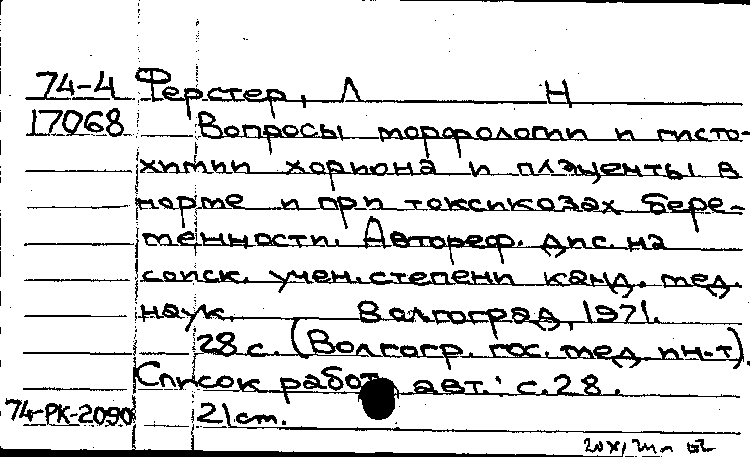 74-4 Ферстер, Л Н
17068 Вопросы морфологии и гисто-
химии хориона и плаценты в
норме и при токсикозах бере-
менности. Автореф. дис. на
соиск. учен. степени канд. мед.
наук. Волгоград, 1971.
28 с. (Волгогр. гос. мед. ин-т).
Список работ авт.: с. 28.
74-РК-2090 21 cm.